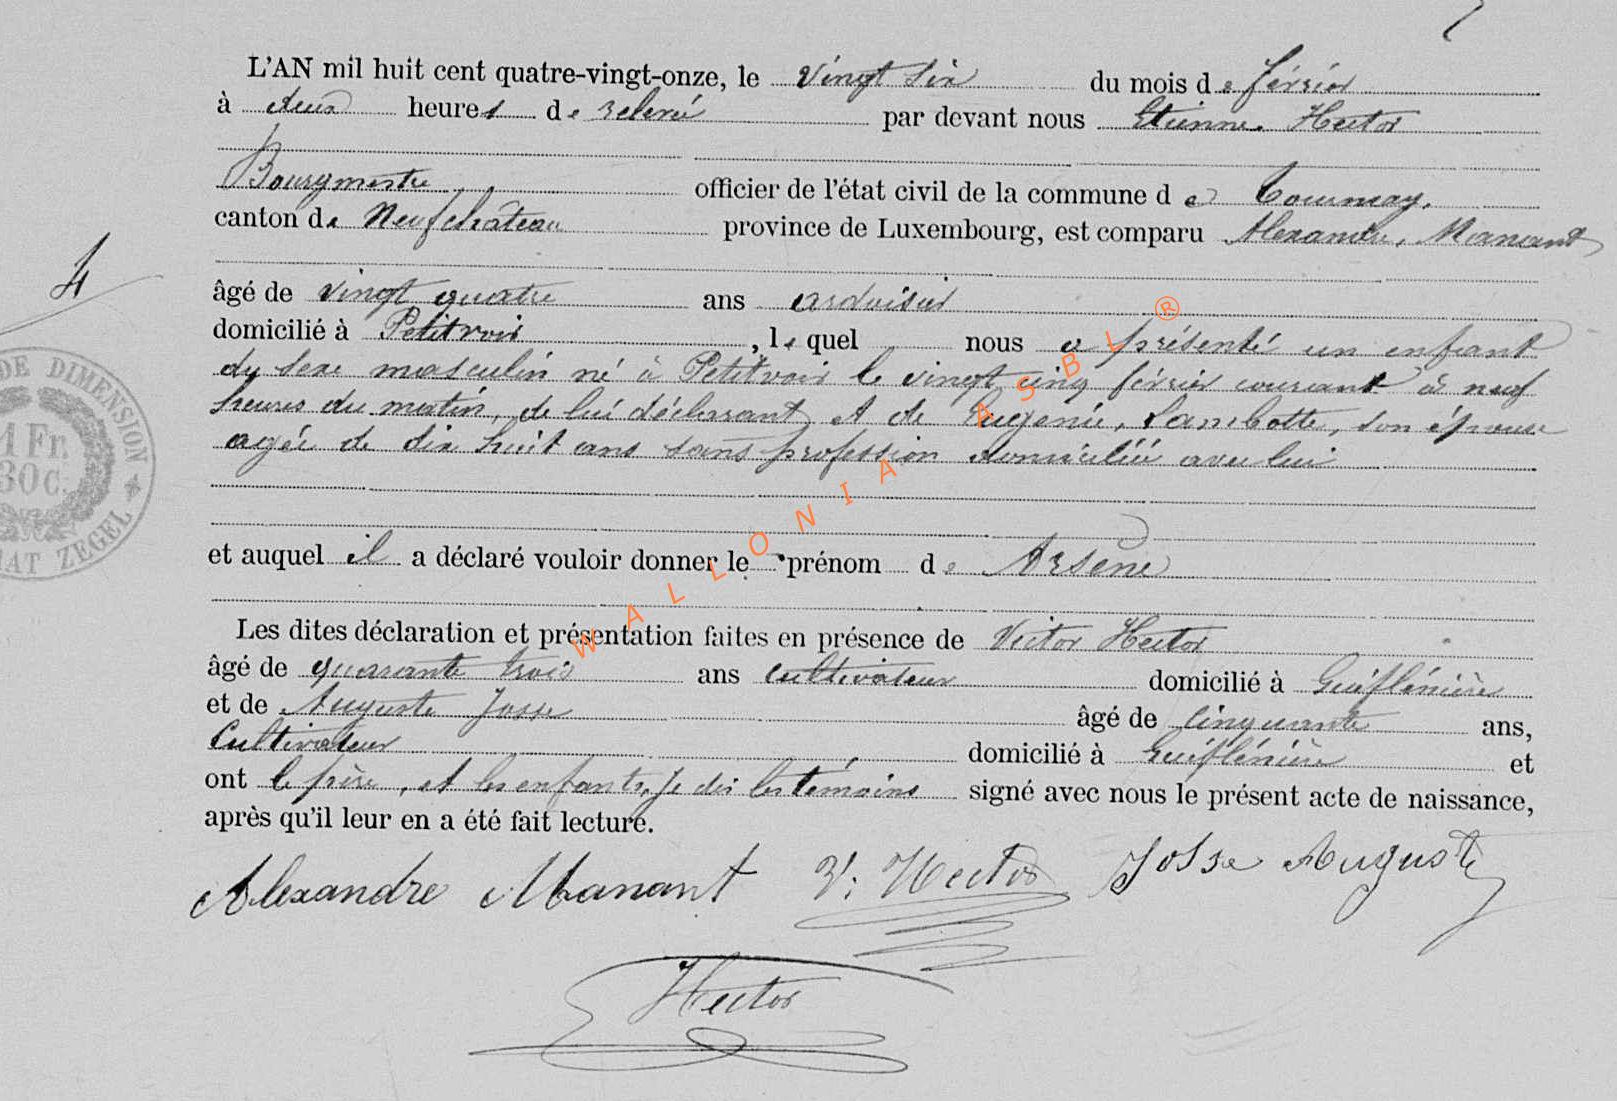 L'AN mil huit cent quatre-vingt-onze, le vingt six du mois de février
à deux heures de relevé par devant nous Etienne. Hector
Bourgmestre officier de l'état civil de la commune de Tournay.
canton de Neufchâteau province de Luxembourg, est comparu Alexandre, Manant
4
âgé de vingt quatre ans ardoisier
domicilié à Petitvoir, lequel nous a présenté un enfant
du sexe masculin né à Petitvoir le vingt cinq février courant à neuf
heures du matin, de lui déclarant et de Eugenie, Lambotte, son épouse
agée de dix huit ans sans profession domiciliée avec lui
et auquel il a déclaré vouloir donner le prénom de Arsène
Les dites déclaration et présentation faites en présence de Victor Hector
âgé de quarante trois ans cultivateur domicilié à Grifflénière
et de Auguste Josse âgé de cinquante ans,
Cultivateur domicilié à et
ont le père, et les enfants, je dis les témoins signé avec nous le présent acte de naissance,
après qu'il leur en a été fait lecture.
Alexandre Manant V. Hector Josse Auguste
Hector
DE DIMENSION
1 Fr.
30c.
ZEGEL
WALLONIA ASBL ®